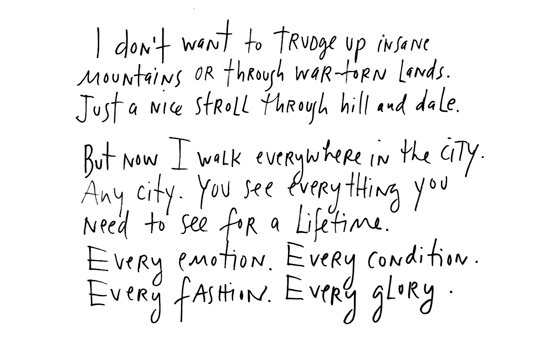 I don't want to TRUDGE up insane
mountains or through war-torn lands.
Just a nice stroll through hill and dale.
But now I walk everywhere in the city.
Any city. You see everything you
need to see for a lifetime.
Every emotion. Every condition.
Every fashion. Every glory.